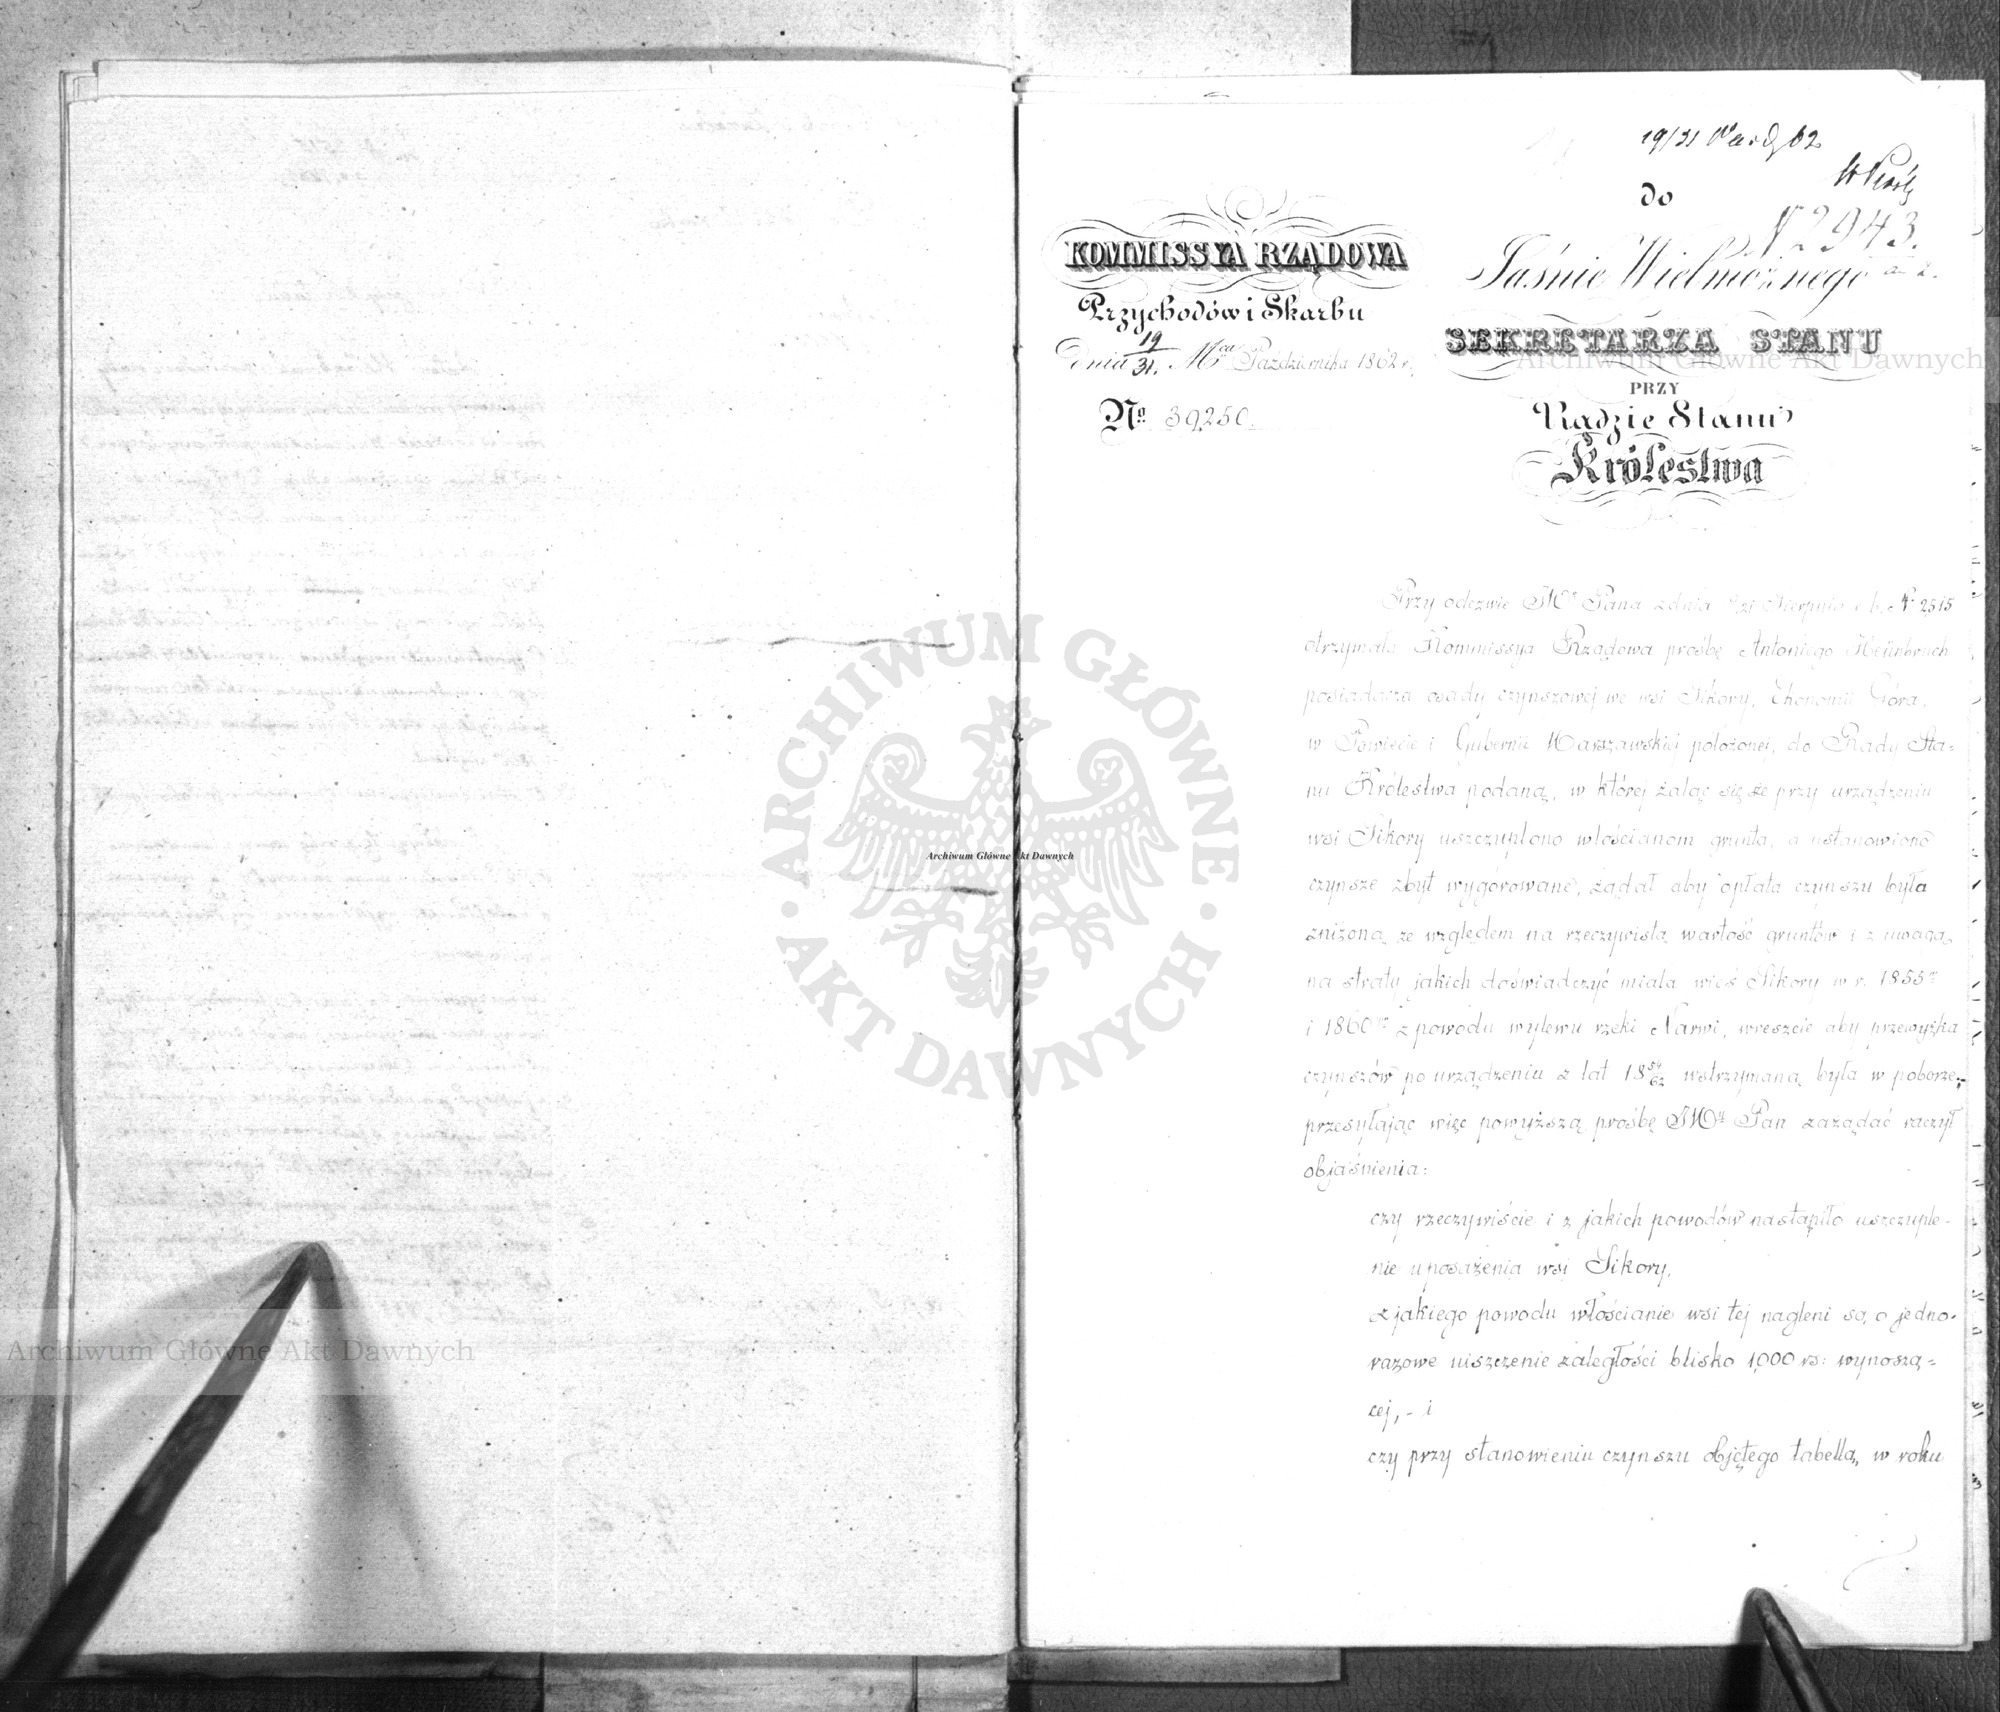 19/31 Paźdz 62
do
N 2943.
KOMMISSYA RZĄDOWA
Przychodów i Skarbu
dnia 19/31. Mca Października 1862 r.
No 39250.
Jaśnie Wielmożnego
SEKRETARZA STANU
PRZY
Radzie Stanu
Królestwa
Przy odezwie JWo Pana z dnia Sierpnia r. b. No 2515
otrzymała Kommissya Rządowa prośbę Antoniego Heünbruch
posiadacza osady czynszowej we wsi Sikory, Ekonomii Góra,
w Powiecie i Gubernii Warszawskiej położonej, do Rady Sta-
nu Królestwa podaną, w której żaląc się że przy urządzeniu
wsi Sikory uszczuplono włościanom grunta, a ustanowiono
czynsze zbyt wygórowane, żądał aby opłata czynszu była
zniżoną ze względem na rzeczywistą wartość gruntów i z uwagą
na straty jakich doświadczyć miała wieś Sikory w r. 1855m
i 1860m z powodu wylewu rzeki Narwi, wreszcie aby przewyżka
czynszów po urządzeniu z lat 1854/62 wstrzymaną była w poborze;
przesyłając więc powyższą prośbę JWy Pan zażądać raczył
objaśnienia:
czy rzeczywiście i z jakich powodów nastąpiło uszczuple-
nie uposażenia wsi Sikory,
z jakiego powodu włościanie wsi tej nagleni są o jedno-
razowe uiszczenie zaległości blisko 1,000 rs: wynoszą-
cej, - i
czy przy stanowieniu czynszu objętego tabellą, w roku
Archiwum Główne Akt Dawnych
ARCHIWUM GŁÓWNE AKT DAWNYCH
Archiwum Główne Akt Dawnych
Archiwum Główne Akt Dawnych